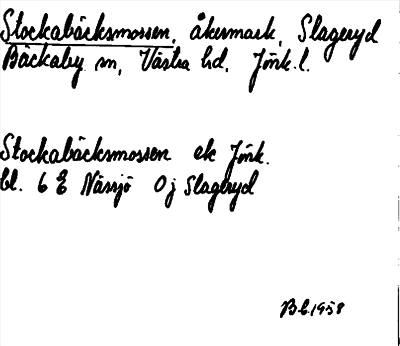 Stockabäcksmossen, åkermark, Slageryd
Bäckaby sn, Västra hd, Jönk. l.
Stockabäcksmossen ek Jönk.
bl. 6 E Nässjö 0j Slageryd
Bb 1958